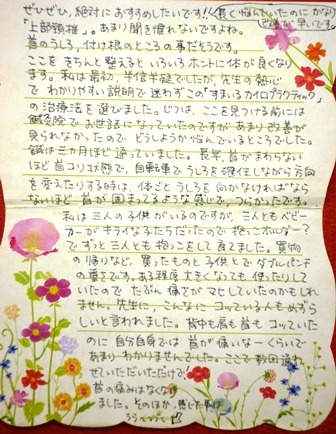 ぜひぜひ、絶対におすすめしたいです!!(長く悩んでいたのに かなり
改善が早いです。
「上部頸椎」。あまり聞き慣れないですよね。
首のうしろ、付け根のところの事だそうです。
ここを きちんと整えると いろいろ ホントに体が 良くなり
ます。私は最初、半信半疑でしたが 先生の熱心
で わかりやすい説明で 迷わず この「すまいるカイロプラクティック」
の治療法を選びました。じつは、ここを見つける前には
鍼灸院で お世話になっていたのですが あまり改善が
見られなかったので どうしようか悩んでいるところでした。
鍼は三カ月ほど通っていました。長年、首がまわらない
ほど首コリ状態で、自転車でうしろを確任しながら方向
を変えたりする時は、体ごとうしろを向かなければなら
ないほど 首が固まってるような感じで、つらかったです。
私は三人の子供がいるのですが、三人ともベビー
カーが キライな子たちだったので 抱っこホルダー?
でずっと三人とも抱っこをして育てました。買物
の帰りなど、買ったものと子供とでダブルパンチ
の重さです。ある程度大きくなっても使ったりして
いたので たぶん 痛さがマヒしていたのかもしれ
ません。先生に、こんなにコッている人もめずら
しいと言われました。背中も肩も首もコッていた
のに 自分自身では 首が痛いなーくらいで
あまりわかりませんでした。ここで数回通わ
せていただいただけで
首の痛みはなくなり
ました。そのほか、感じた事は